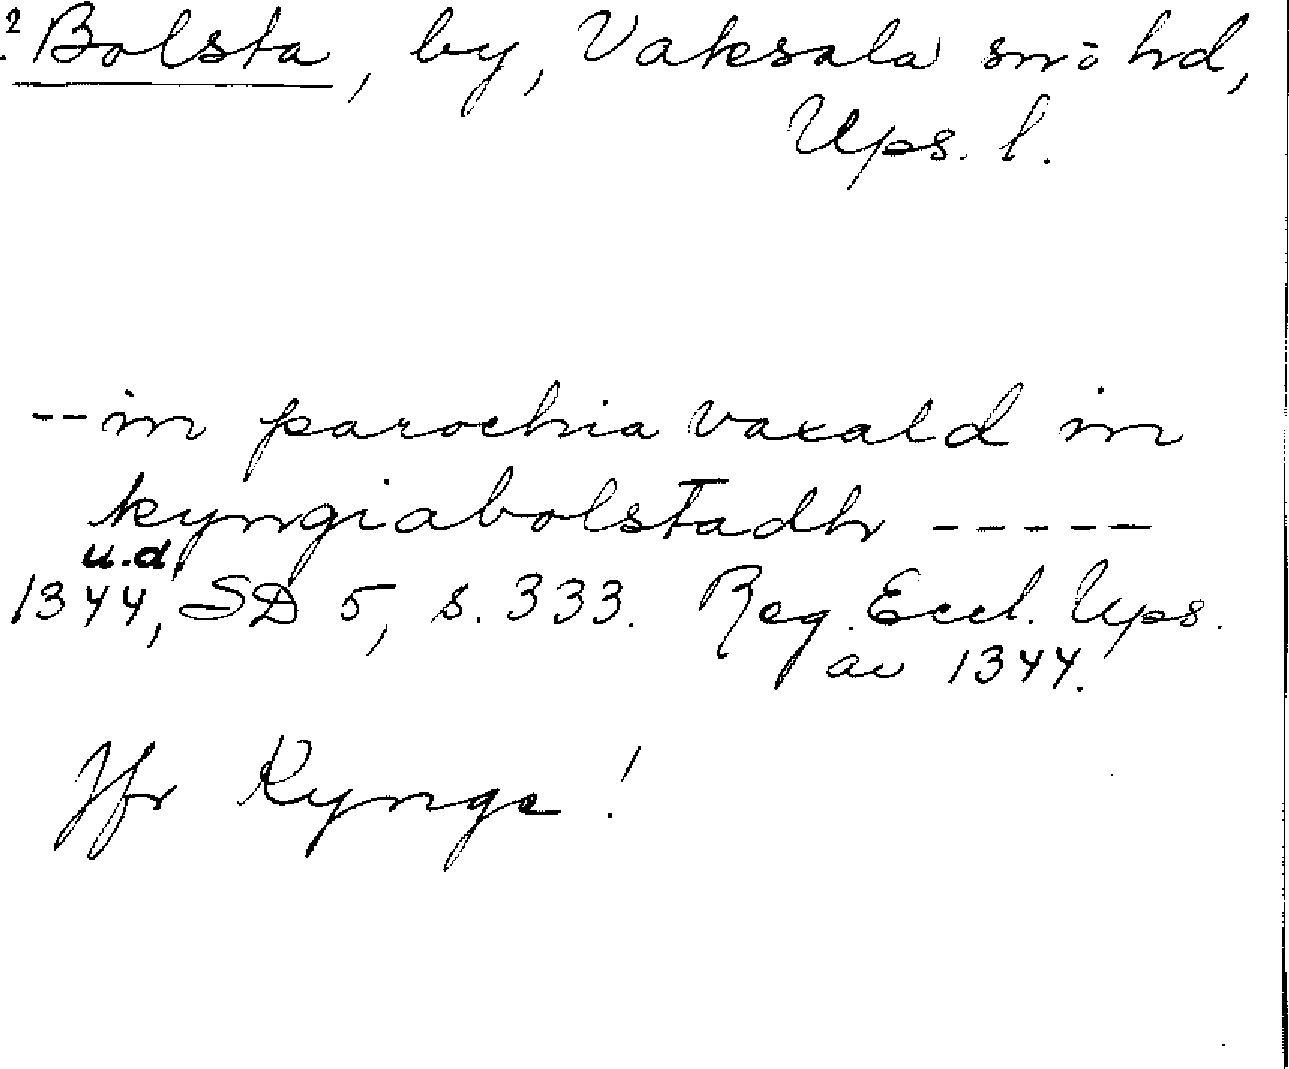 ? Bolsta, by, Vaksala sn o hd,
Ups. l.
-- in parochia vaxald in
kyngiabolstadh -----
u.d.
1344, SD 5, s. 333. Reg. Eccl. Ups.
av 1344.
Jfr Kynge!